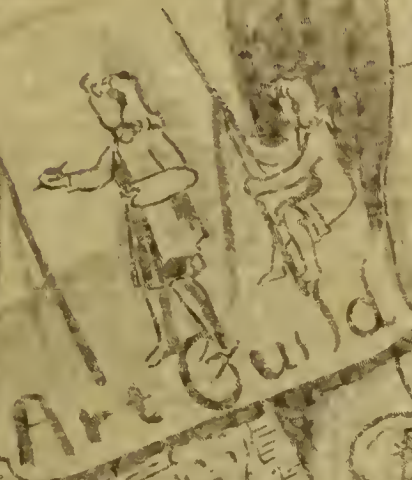 Art Guild